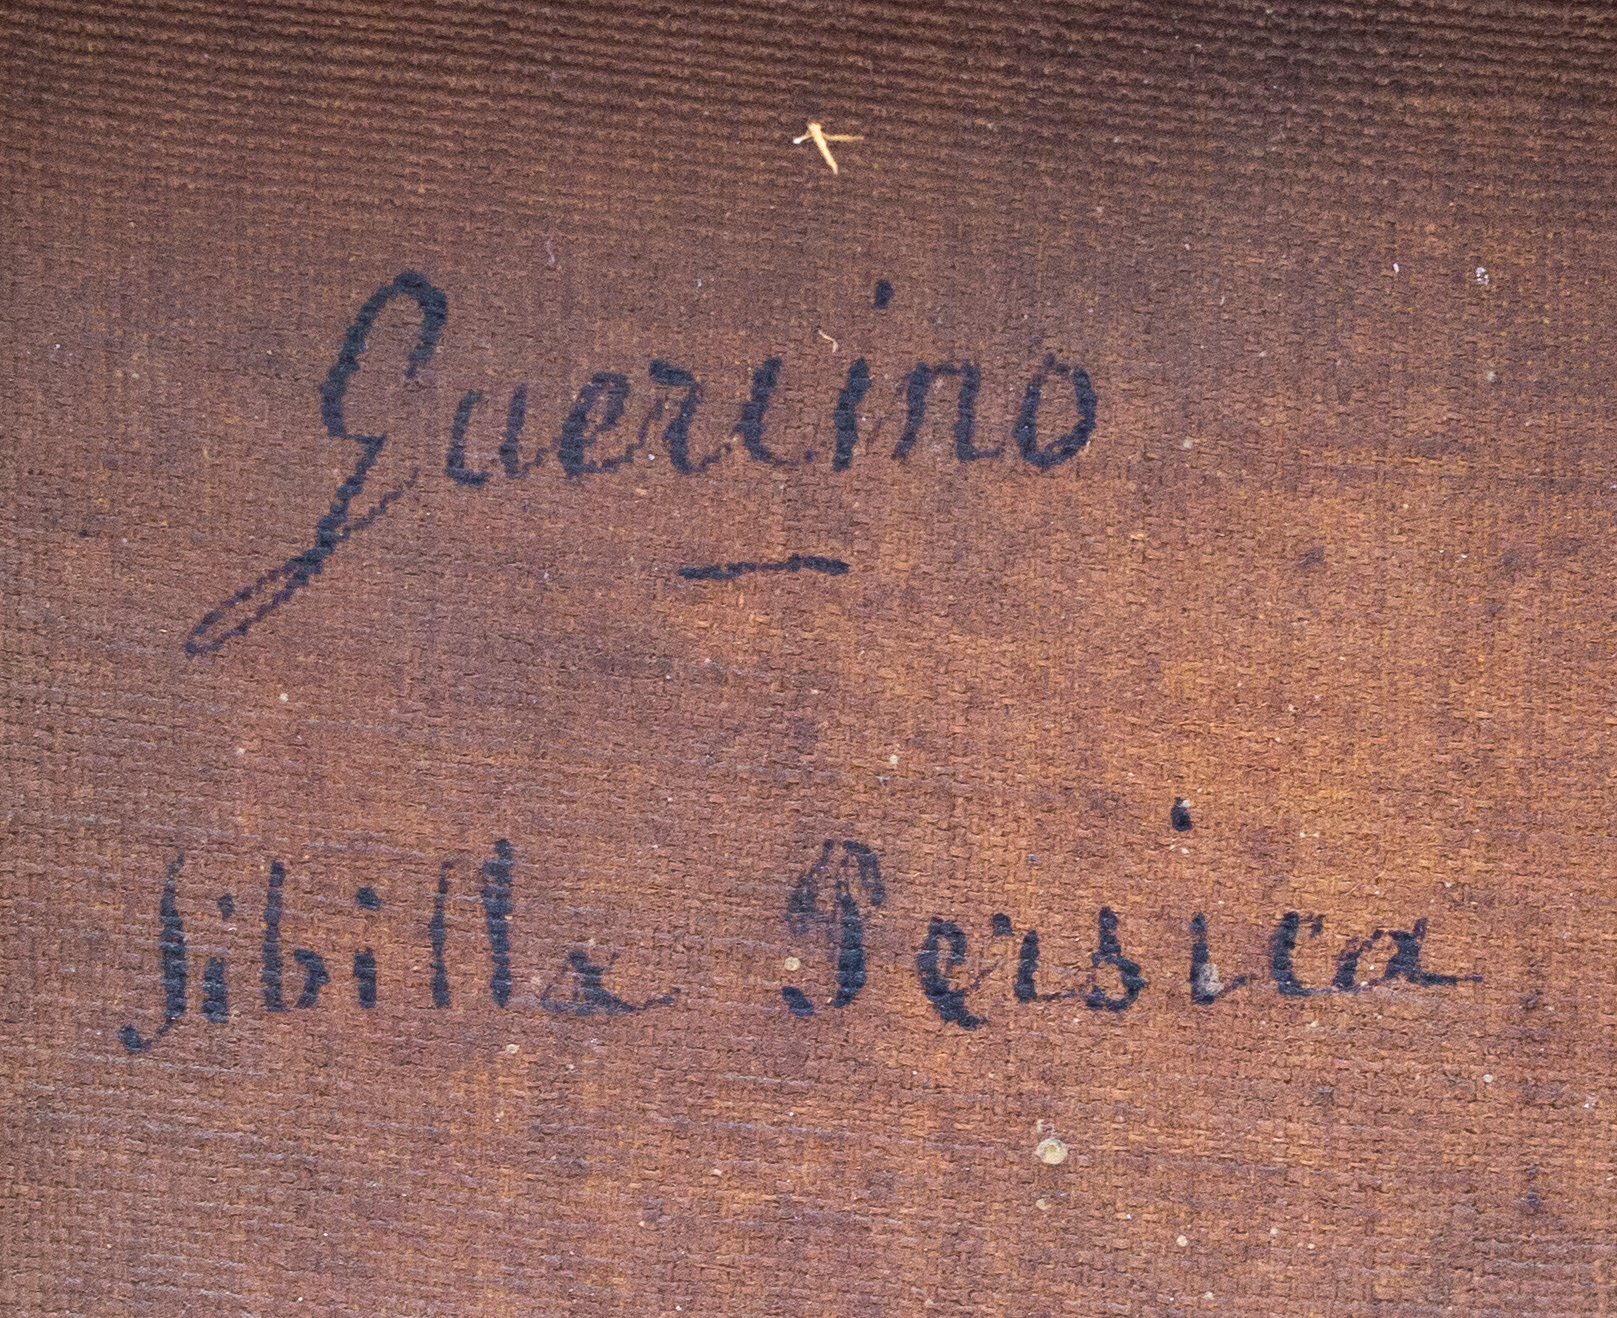 Guercino
—
Sibilla Persica